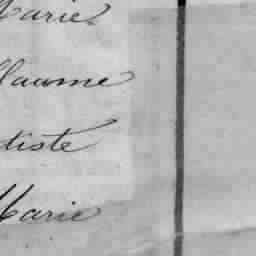 Marie
llaume
tiste
Marie